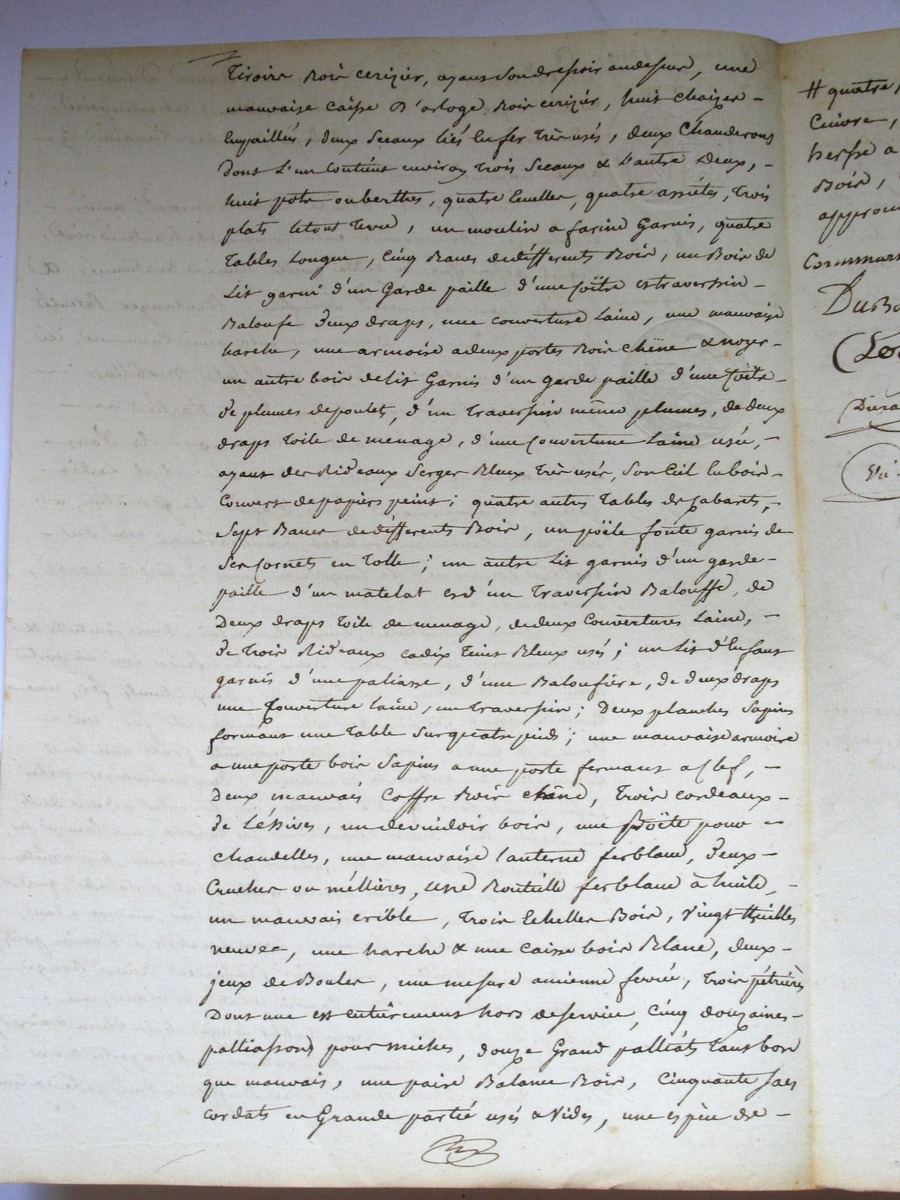 tiroirs Bois cerizier, ayant son dressoir audessus, une
mauvaise caisse d'orloge Bois cerizier, huit chaizes
Enpaillés, deux Seaux liés En fer très usés, deux Chauderons
Dont L'un Contient environ trois Seaux & L'autre Deux,
huit pots ou berthes, quatre Ecuelles, quatre assiétes, trois
plats letout terre, un moulin a farine Garnis, quatre
tables Longue, Cinq Bancs de différents Bois, un Bois de
Lit garni d'un Garde paille d'une Coître et traversin
Baloufe deux draps, une couverture Laine, une mauvaise
harche, une armoise a deux portes Bois chêne & noyer
un autre bois de lit Garnis d'un garde paille d'une Coitre
de plumes de poulet, d'un traversin même plumes, de deux
draps toile de menage, d'une Couverture Laine usée,
ayant des Rideaux Serges Bleux très usés, Son Ciel En bois
Couvert de papiers peint ; quatre autres tables de Cabarets,
Sept Bancs de différents Bois, un poële fonte garnis de
Ses Cornets en tolle ; un autre Lit garnis d'un garde
paille d'un matelat et d'un traversin Balouffe, de
Deux draps toile de menage, de deux Couvertures Laine,
de trois Rideaux cadix teint Bleux usés ; un Lit d'Enfant
garnis d'une paliasse, d'une Baloufière, de deux draps
une Couverture laine, un traversin ; Deux planches Sapins
formant une table Sur quatre pieds ; une mauvaise armoire
a une porte bois Sapins a une porte fermant a Clef,
Deux mauvais Coffre Bois chêne, trois cordeaux
de Léssives, un devindoir bois, une boëte pour
chandelles, une mauvaise lanterne ferblanc, deux
Cruches ou méllières, une Bouteille ferblanc à huile
un mauvais crible, trois Echelles Bois, Vingt thuilles
neuves, une harche & une Caisse bois Blanc, deux
jeux de Boules, une mesure ancienne ferrée, trois pétrières
Dont une est entièrement hors de service, Cinq douzaines
palliassons pour miches, douze Grand palliats tant bon
que mauvais, une paire Balance Bois, Cinquante Sacs
cordats en Grande partie usés & Vides, une espèce de
# quatre
Cuivre,
herse a
Bois,
approu
Dub